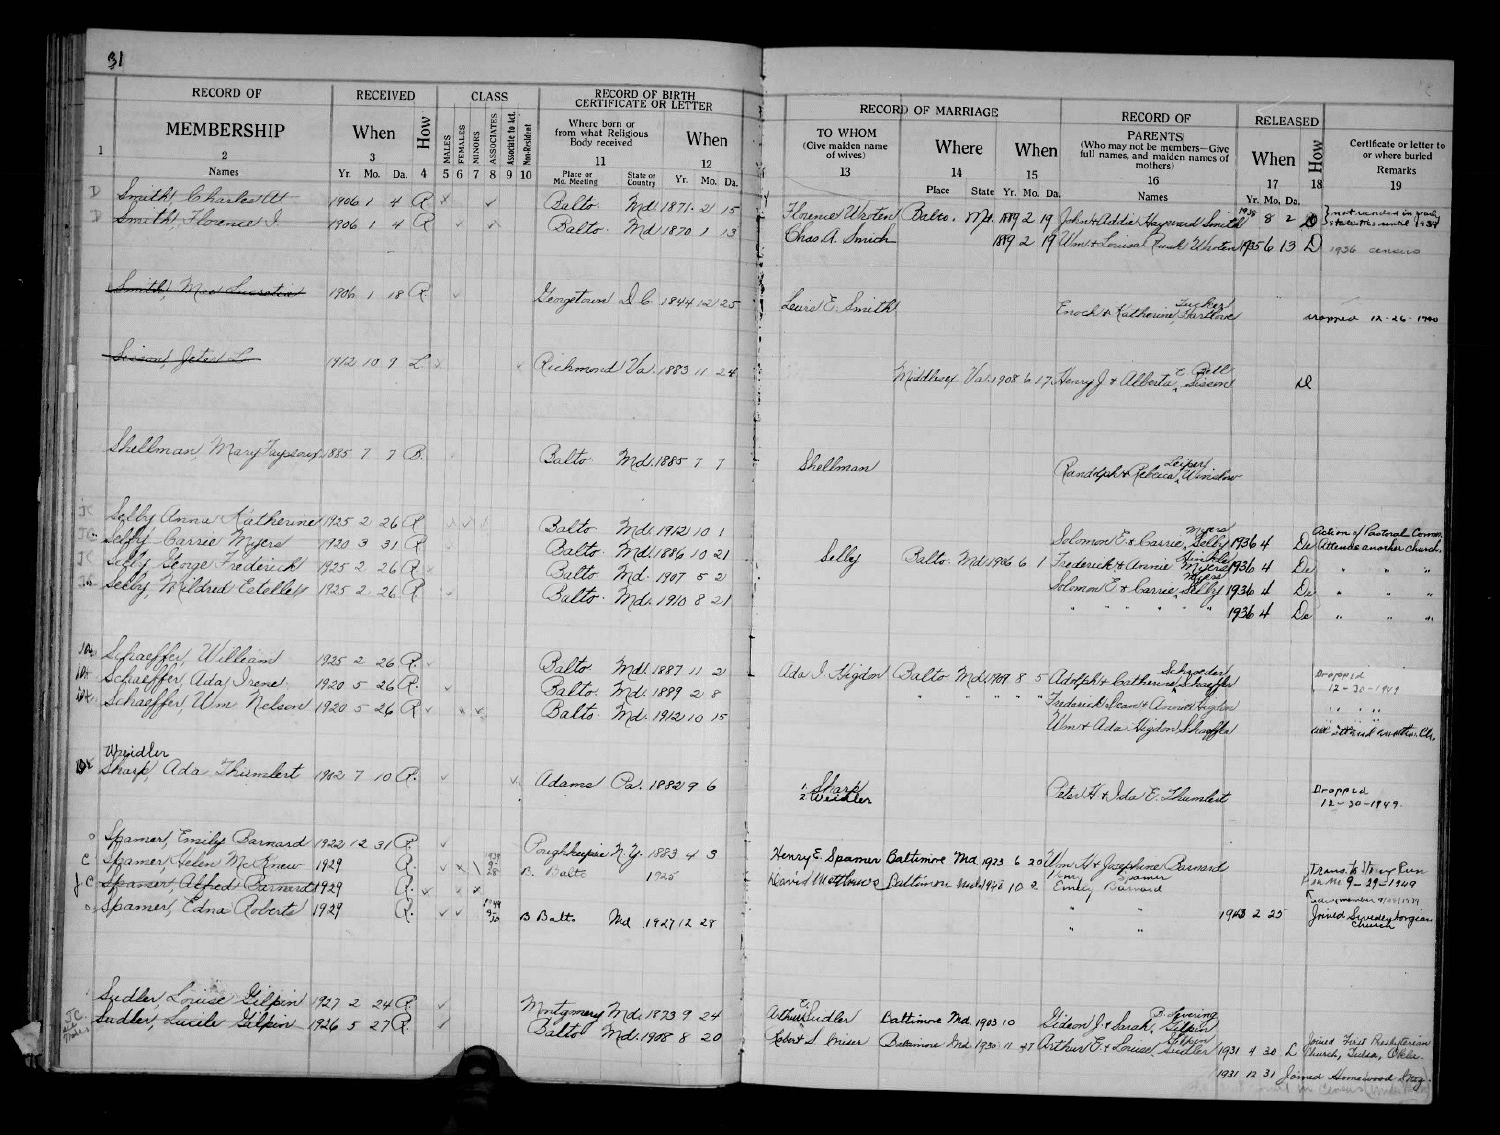 31
RECORD OF RECEIVED CLASS RECORD OF BIRTH CERTIFICATE OR LETTER
MEMBERSHIP When How MALES FEMALES MINORS ASSOCIATES Associate to Act. Non-Resident Where born or from what Religious Body received When
1 2 3 4 5 6 7 8 9 10 11 12
Names Yr. Mo. Da. Place or Mo. Meeting State or Country Yr. Mo. Da.
D Smith, Charles A 1906 1 4 R Balto. Md 1871 2 15
D Smith, Florence I. 1906 1 4 R Balto. Md 1870 1 13
Smith, Mrs Lucretia 1906 1 18 R Georgetown D.C. 1844 12 25
Sisson, Jeter L 1912 10 9 L Richmond Va. 1883 11 24
Shellman, Mary 1885 7 7 B. Balto Md. 1885 7 7
JC Selby Anna Katherine 1925 2 26 R Balto. Md. 1912 10 1
JC Selby Carrie Myers 1920 3 31 R Balto. Md. 1886 10 21
JC Selby George Frederick 1925 2 26 R Balto Md. 1907 5 2
Selby, Mildred Estelle 1925 2 26 R Balto. Md. 1910 8 21
Schaeffer, William 1925 2 26 R. Balto. Md. 1887 11 2
Schaeffer, Ada Irene 1920 5 26 R. Balto. Md. 1889 2 8
Schaeffer, Wm Nelson 1920 5 26 R Balto. Md. 1912 10 15
Weidler
Sharp, Ada Thumlert 1902 7 10 R. Adams Pa. 1882 9 6
Spamer, Emily Barnard 1922 12 31 R. Poughkeepsie N.Y. 1883 4 3
C Spamer, Helen McKnew 1929 R. B. Balto 1925
JC Spamer, Alfred Barnard 1929 R.
Spamer, Edna Roberts 1929 R. B Balto Md 1927 12 28
Sudler, Louise Gilpin 1927 2 24 R. Montgomery Md. 1873 9 24
JC Sudler, Lucile Gilpin 1926 5 27 R. Balto Md. 1908 8 20
RECORD OF MARRIAGE RECORD OF RELEASED
TO WHOM (Give maiden name of wives) Where When PARENTS (Who may not be members—Give full names, and maiden names of mothers) When How Certificate or letter to or where buried Remarks
13 14 15 16 17 18 19
Place State Yr. Mo. Da. Names Yr. Mo. Da.
Florence Wroten Balto. Md. 1889 2 19 John & Adda Hayward Smith 1938 8 2 D
Chas A. Smith 1889 2 19 Wm & Louisa Wroten 1935 6 13 D 1936 census
Lewis E. Smith Enoch & Katherine Tucker Dropped 12-26-1940
Middlesex Va. 1908 6 17 Henry J & Alberta C Bell Sisson
Shellman Randolph & Rebecca Leiper Winslow
Solomon E. & Carrie Myers Selby 1936 4 De Action of Pastoral Comm. Attends another church.
Selby Balto. Md 1906 6 1 Frederick & Annie Hinkle Myers 1936 4 De " " "
Solomon E & Carrie Myers Selby 1936 4 De " " "
" " " " " " 1936 4 De " " "
Ada I. Higdon Balto Md 1909 8 5 Adolph & Catherine Schroeder Schaeffer Dropped 12-30-1949
" " " " " Frederick Dean & Annie Higdon " " "
Wm & Ada Higdon Schaeffer
1. Sharp
2. Weidler Peter H & Ida E. Thumlert Dropped 12-30-1949.
Henry E. Spamer Baltimore Md 1923 6 20 Wm H & Josephine Barnard
David Matthews Baltimore Md 1948 10 2 Henry Spamer Emily Barnard Trans. to Stony Run 9-29-1949
" " 1943 2 25 Joined Swedenborgian Church
" "
Arthur E. Sudler Baltimore Md 1903 10 Gideon J. & Sarah B. Levering Gilpin
Robert S. Miser Baltimore Md 1930 11 27 Arthur E. & Louise Gilpin Sudler 1931 4 30 L Joined First Presbyterian Church, Tulsa, Okla.
1931 12 31 Joined Homewood Mtg.